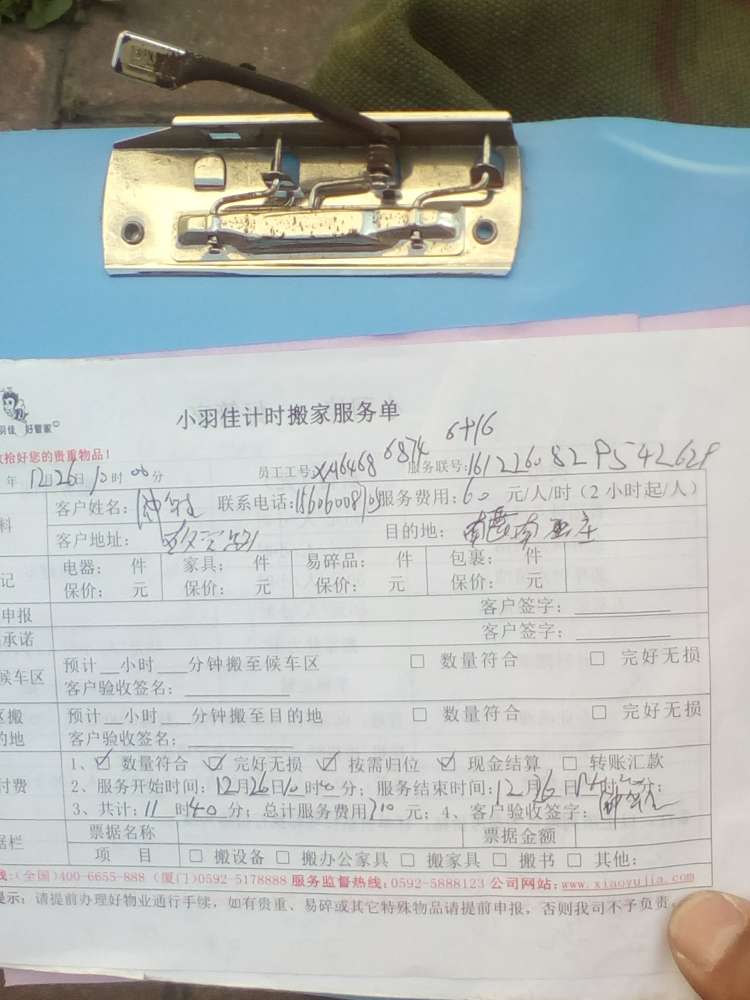 好管家
小羽佳计时搬家服务单
拾好您的贵重物品!
年 12月26日10时00分 员工工号: 6874 6416 服务联号:
客户姓名: 联系电话: 服务费用:60 元/人/时(2小时起/人)
客户地址: 目的地:
电器: 件 家具: 件 易碎品: 件 包裹: 件
保价: 元 保价: 元 保价: 元 保价: 元
申报 客户签字:
承诺 客户签字:
候车区 预计__小时___分钟搬至候车区 □ 数量符合 □ 完好无损
客户验收签名:
区搬 预计__小时___分钟搬至目的地 □ 数量符合 □ 完好无损
的地 客户验收签名:
付费 1、☑ 数量符合 ☑ 完好无损 ☑ 按需归位 ☑ 现金结算 □ 转账汇款
2、服务开始时间:12月26日10时00分;服务结束时间:12月26日 分;
3、共计:11时40分;总计服务费用 元;4、客户验收签字:
据栏 票据名称 票据金额
项 目 □ 搬设备 □ 搬办公家具 □ 搬家具 □ 搬书 □ 其他:
线:(全国)400-6655-888 (厦门)0592-5178888 服务监督热线:0592-5888123 公司网站:www.xiaoyujia.com
提示:请提前办理好物业通行手续,如有贵重、易碎或其它特殊物品请提前申报,否则我司不予负责。